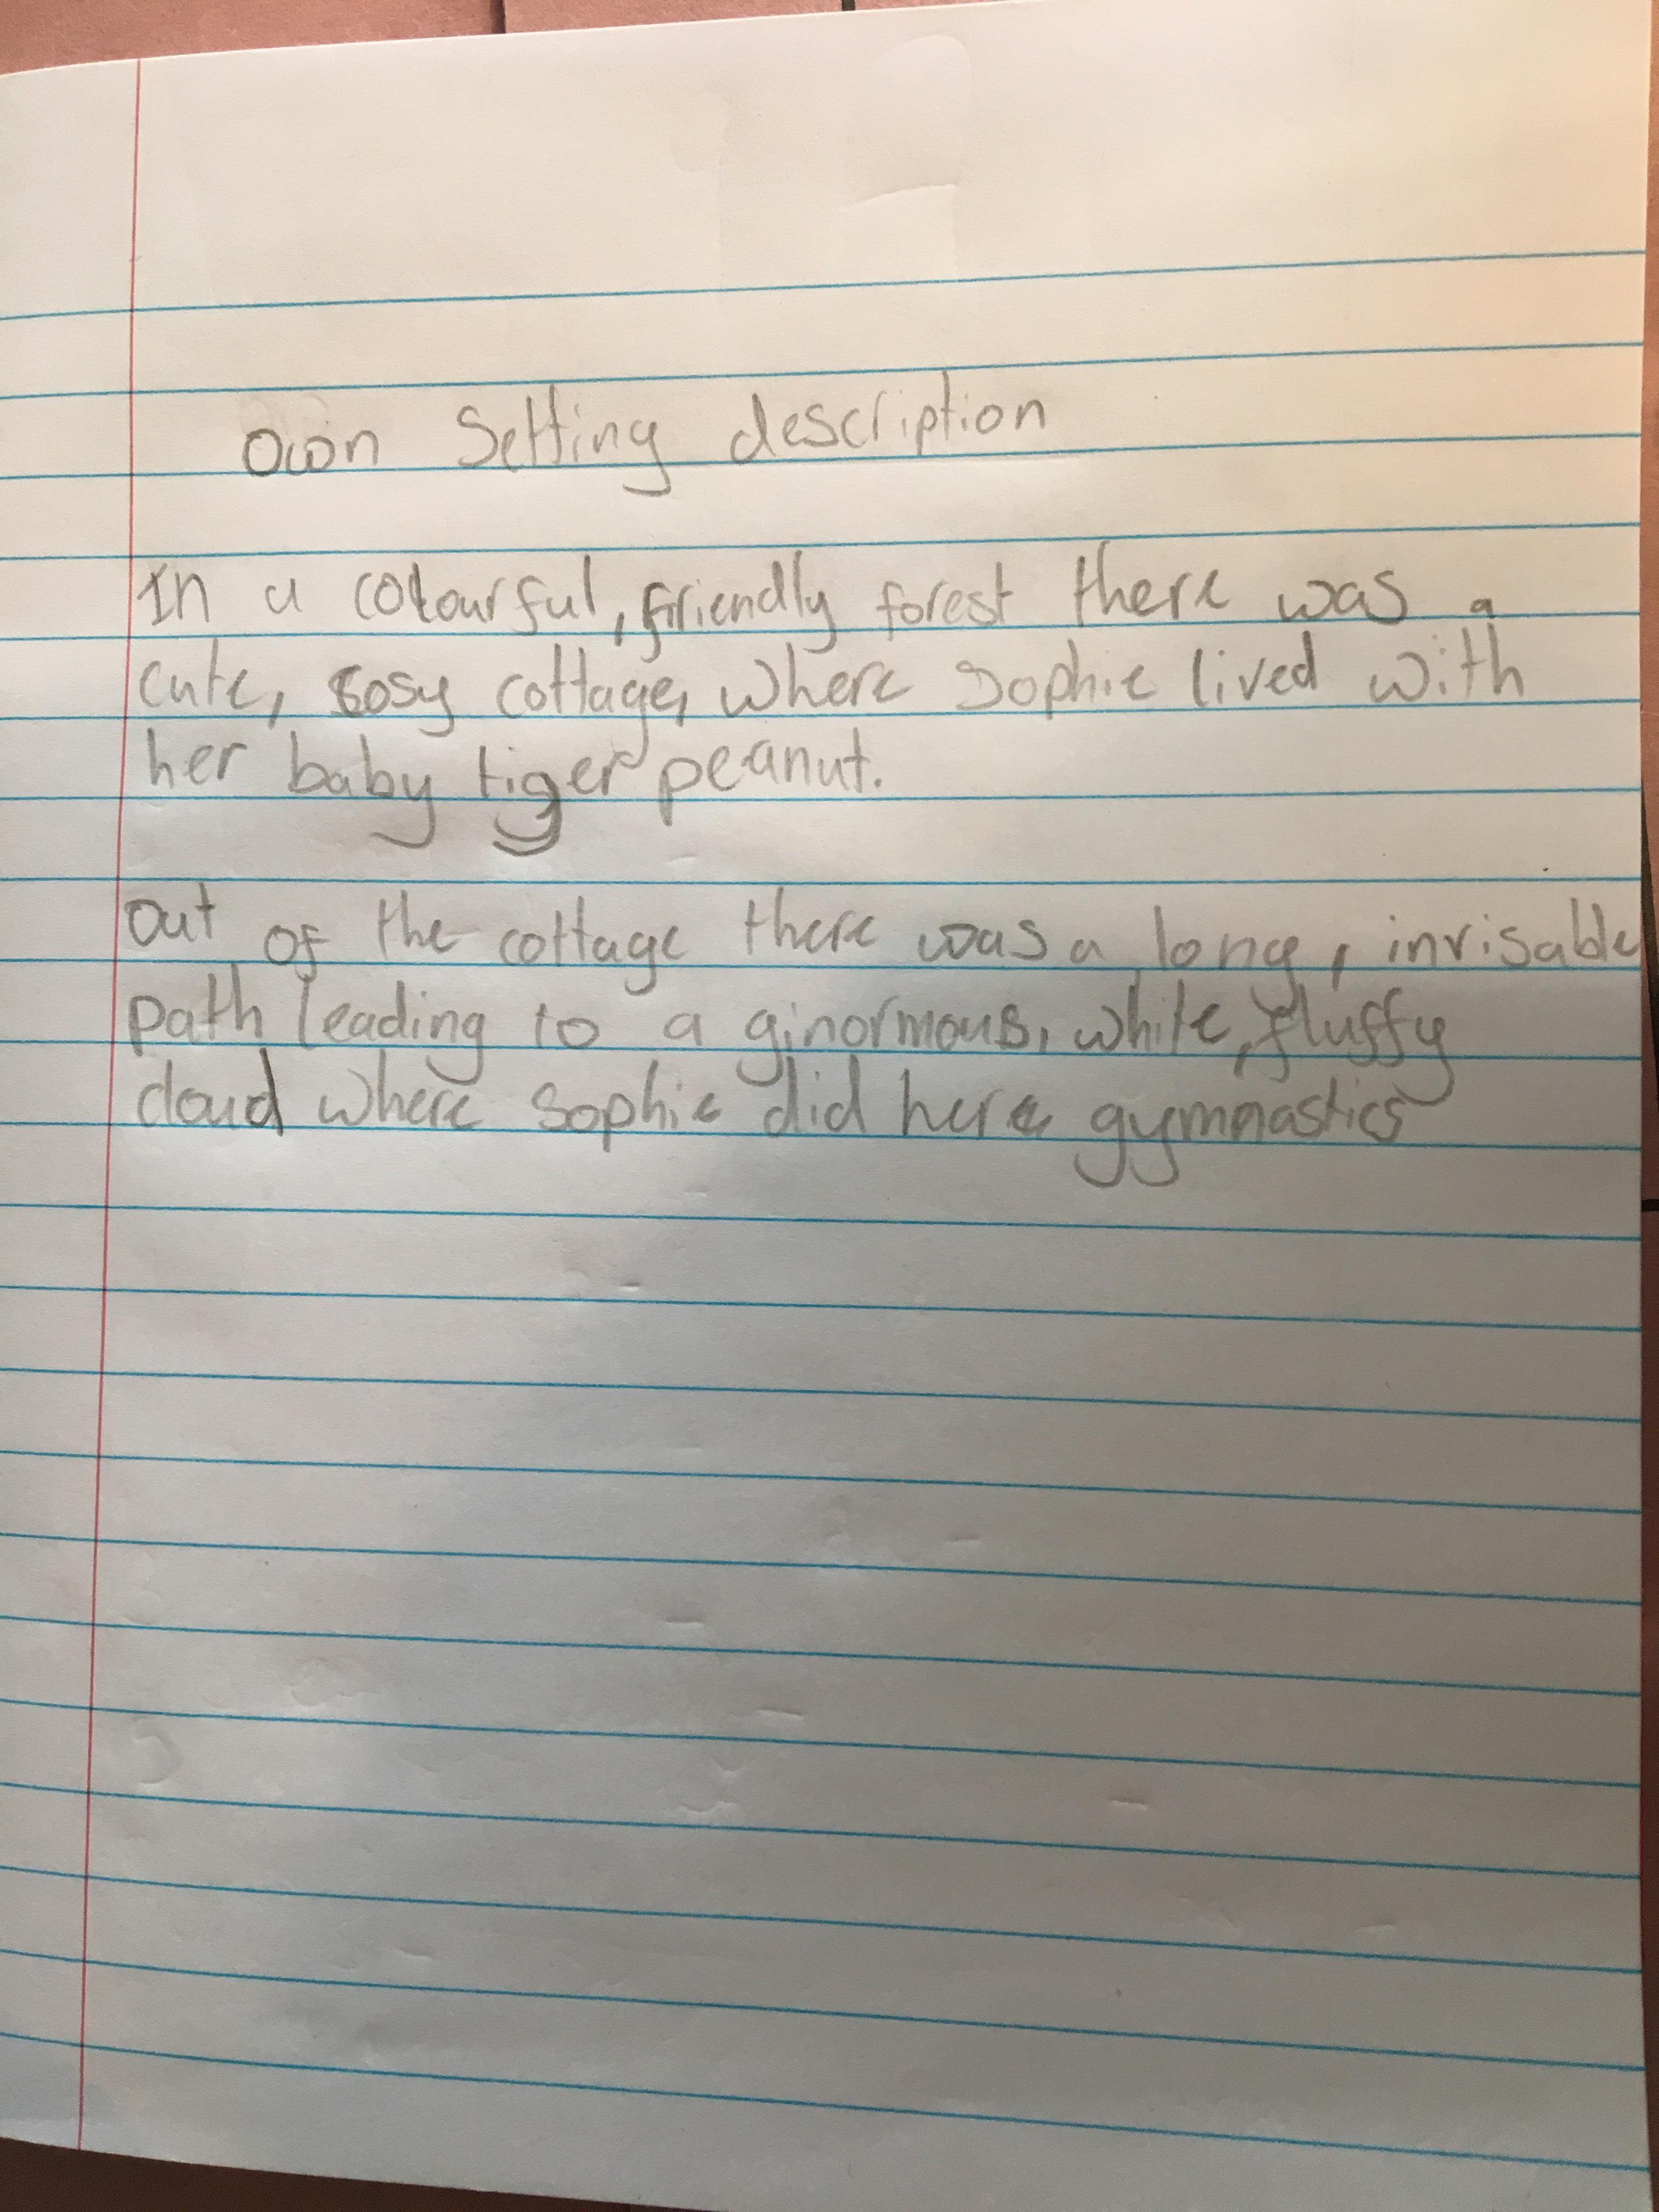 Own Setting description
In a colourful, friendly forest there was a
cute, sosy cottage, where Sophie lived with
her baby tiger peanut.
Out of the cottage there was a long, invrisable
path leading to a ginormous, white, fluffy
cloud where Sophie did here gymnastics